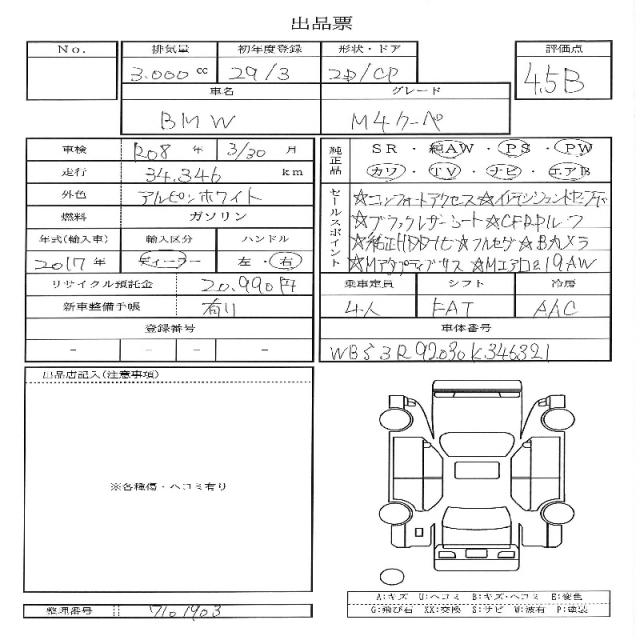 出品票
No. 排気量 初年度登録 形状・ドア 評価点
3.000 cc 29/3 2D/CP 4.5B
車名 グレード
BMW M4クーペ
車検 R08 年 3/30 月
走行 34.346 km
外色 アルピンホワイト
燃料 ガソリン
年式(輸入車) 輸入区分 ハンドル
2017 年 ディーラー 左・右
リサイクル預託金 20.990円
新車整備手帳 有り
登録番号
- - - -
純正品 SR・純AW・PS・PW
カワ・TV・ナビ・エアB
セールスポイント ☆コンフォートアクセス☆
☆ブラックレザーシート☆CFRPルーフ
☆純正HDDナビ☆フルセグ☆Bカメラ
☆Mアダプティブサス☆Mエアロ☆19AW
乗車定員 シフト 冷房
4人 FAT A/C
車体番号
WBS3R92030K346321
出品店記入(注意事項)
※各種傷・ヘコミ有り
A:キズ U:ヘコミ B:キズ・ヘコミ E:変色
G:飛び石 XX:交換 S:サビ W:波有 P:塗装
整理番号 7101903